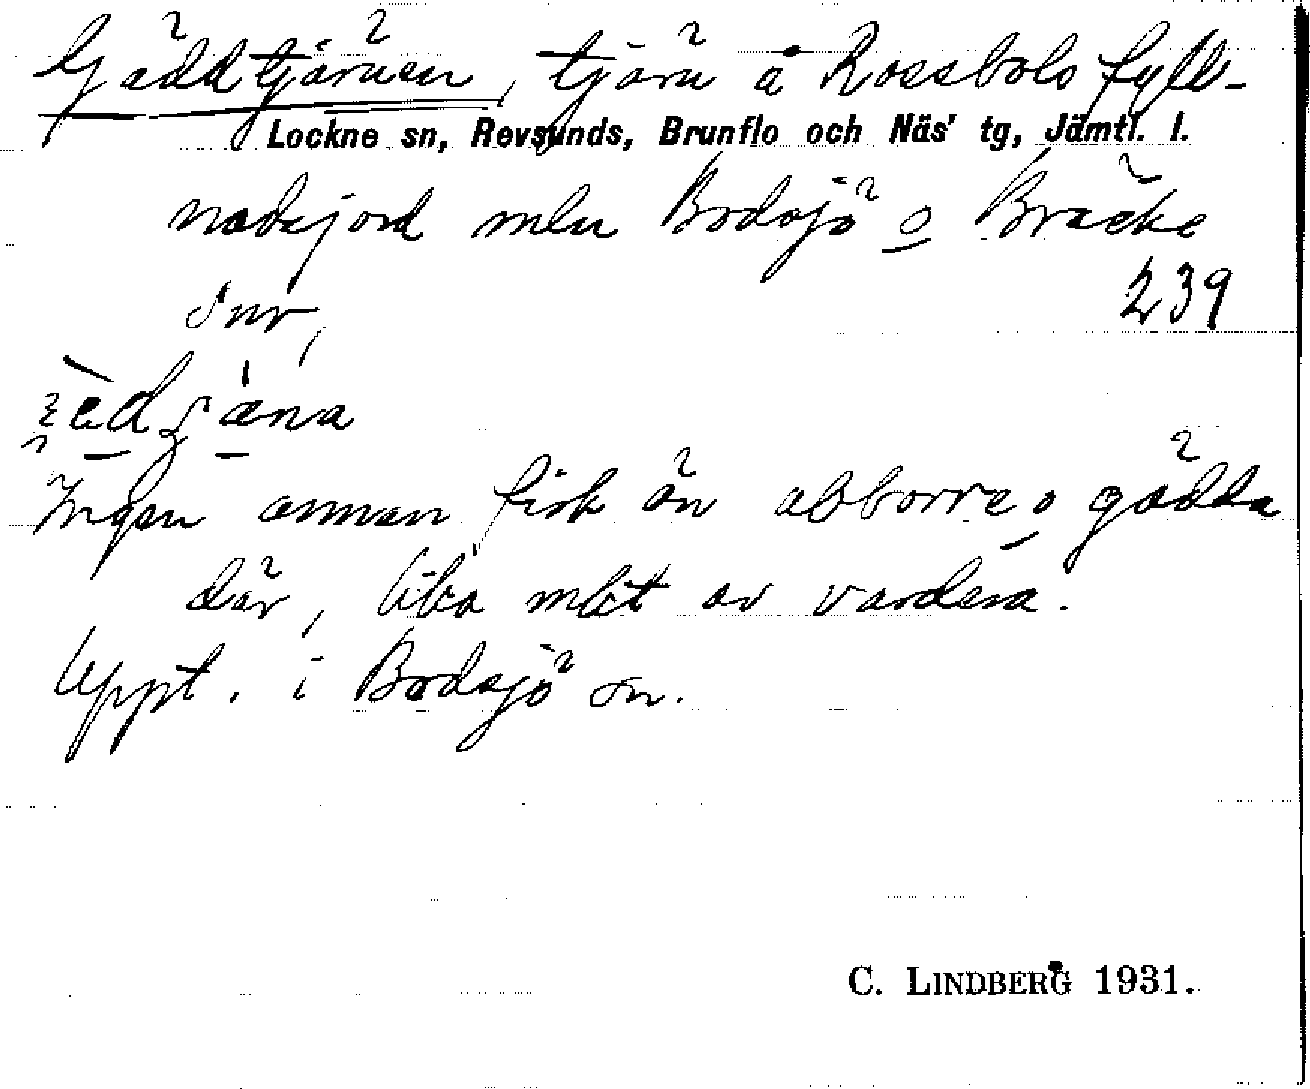 Gäddtjärnen, tjärn å Rossbols fyll-
Lockne sn, Revsunds, Brunflo och Näs' tg, Jämtl. l.
nadsjord mln Bodsjö o Bräcke
snr,
239
Ingen annan fisk än abborre o gädda
där, lika mkt av vardera.
Uppt. i Bodsjö sn.
C. LINDBERG 1931.